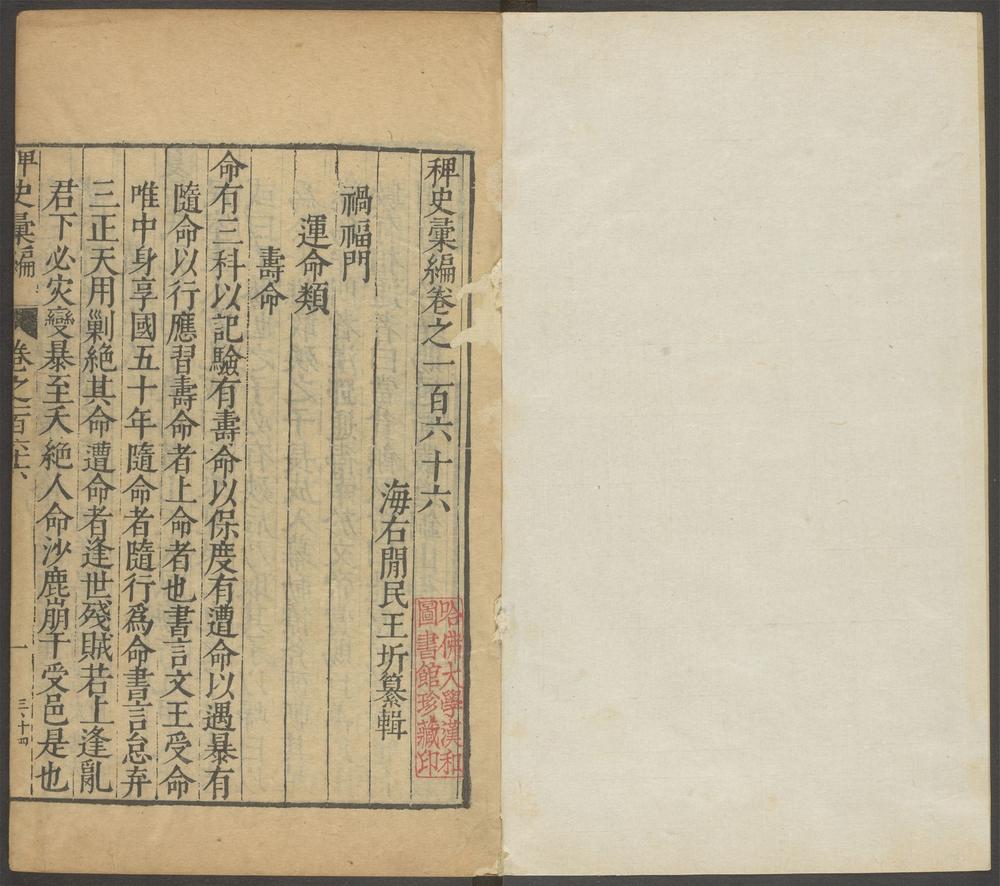 稗史彙編卷之一百六十六
海右閒民王圻纂輯
哈佛大學漢和
圖書館珍藏印
禍福門
運命類
壽命
命有三科以記驗有壽命以保度有遭命以遇暴有
隨命以行應習壽命者上命者也書言文王受命
唯中身享國五十年隨命者隨行爲命書言怠弃
三正天用剿絕其命遭命者逢世殘賊若上逢亂
君下必灾變暴至夭絕人命沙鹿崩于受邑是也
稗史彙編 卷之一百六十六 一 三、十四